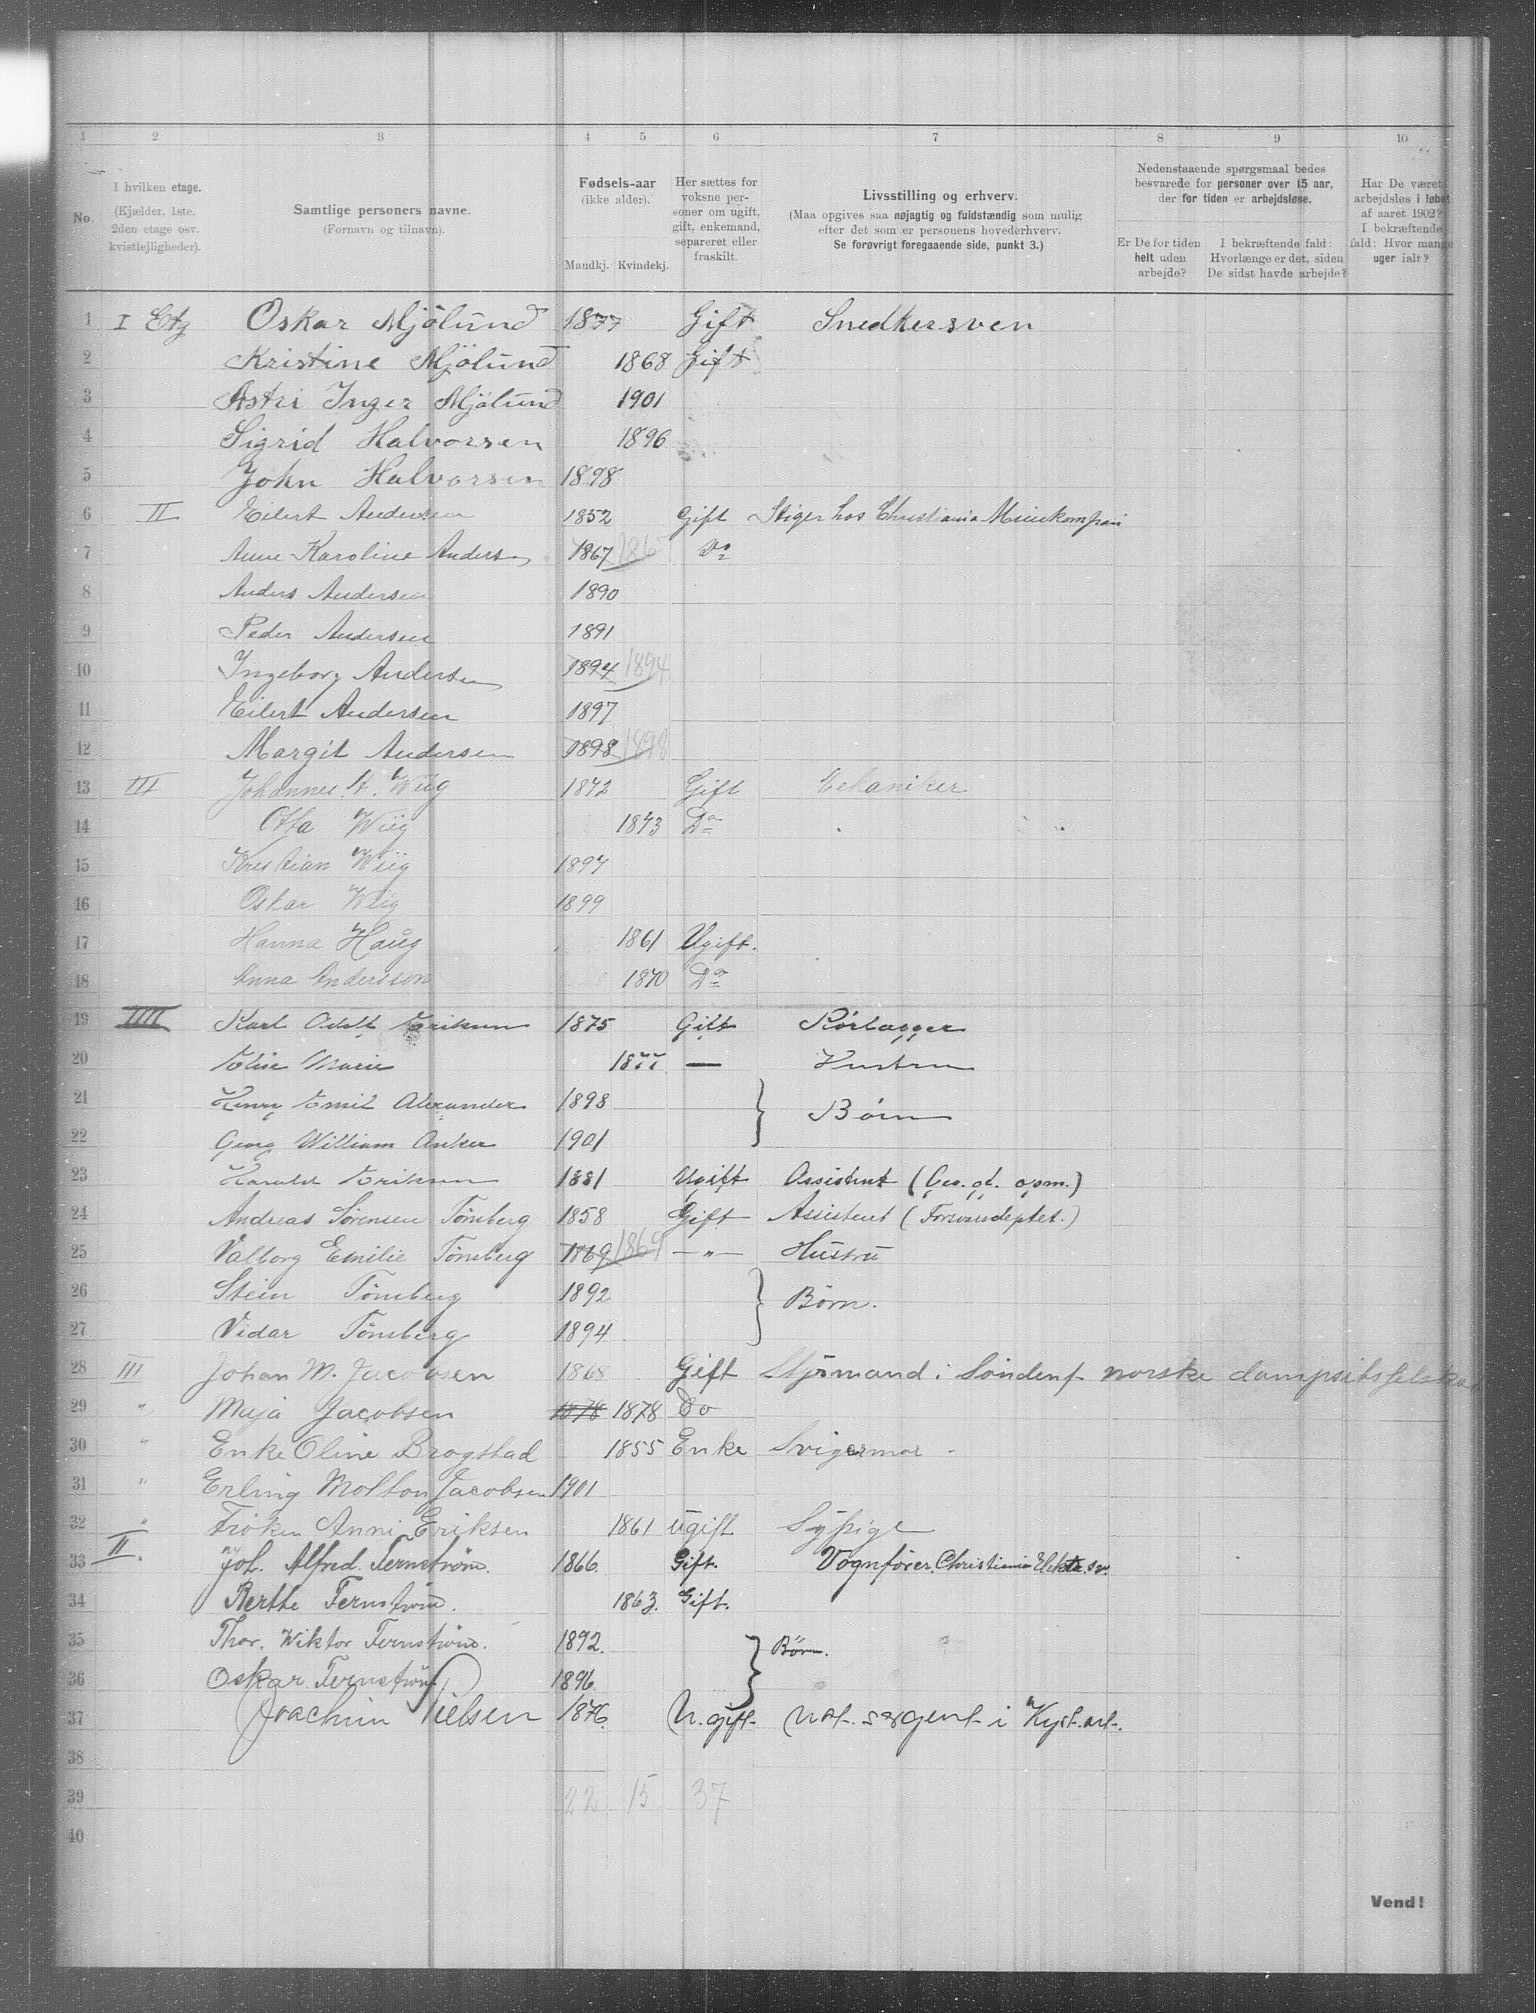 1 2 3 4 5 6 7 8 9 10
No.
I hvilken etage. (Kjælder, 1ste. 2den etage osv. kvistlejligheder).
Samtlige personers navne. (Fornavn og tilnavn).
Fødsels-aar (ikke alder). Mandkj. Kvindekj.
Her sættes for voksne personer om ugift, gift, enkemand, separeret eller fraskilt.
Livsstilling og erhverv. (Maa opgives saa nøjagtig og fuldstændig som mulig efter det som er personens hovederhverv. Se forøvrigt foregaaende side, punkt 3.)
Nedenstaaende spørgsmaal bedes besvarede for personer over 15 aar, der for tiden er arbejdsløse.
Er De for tiden helt uden arbejde?
I bekræftende fald: Hvorlænge er det, siden De sidst havde arbejde?
Har De været arbejdsløs i løbet af aaret 1902? I bekræftende fald: Hvor mange uger ialt?
1 I Etg Oskar Mjölund 1877 Gift Snedkersven
2 Kristine Mjölund 1868 Gift
3 Astri Inger Mjölund 1901
4 Sigrid Halvorsen 1896
5 John Halvorsen 1898
6 II Eilert Andersen 1852 Gift Stiger hos Christiania Minekompani
7 Anne Karoline Andersen 1867 1867 Do
8 Anders Andersen 1890
9 Peder Andersen 1891
10 Ingeborg Andersen 1894 1894
11 Eilert Andersen 1897
12 Margit Andersen 1898 1898
13 III Johannes A. Wiig 1842 Gift Mekaniker
14 Wiig 1843 Do
15 Kristian Wiig 1897
16 Oskar Wiig 1899
17 Hanna Haug 1861 Ugift.
18 Anna Andersson 1870 Do
19 IIII Karl Adolf Eriksen 1875 Gift Rörlægger
20 Elise Marie 1877 — Hustru
21 Henry Emil Alexander 1898 } Börn
22 Georg William Anker 1901
23 Harald Eriksen 1881 Ugift Assistent (Geo. gt. opm.)
24 Andreas Sørensen Tønsberg 1858 Gift Assistent (Forsvarsdeptet.)
25 Valborg Emilie Tønsberg 1869 1869 —„— Hustru
26 Stein Tönsberg 1892 } Börn.
27 Vidar Tönsberg 1894
28 III Johan M. Jacobsen 1868 Gift Styrmand i Söndenf norske dampskibsselskab
29 " Maja Jacobsen 1878 1878 Do
30 " Enke Oline Brogstad 1855 Enke Svigermor -
31 " Erling Molton Jacobsen 1901
32 " Fröken Anni Eriksen 1861 ugift Sypige
33 II. Joh. Alfred Fernström. 1866. Gift. Vognfører, Christiania Elektr. sv.
34 Berthe Fernström. 1863. Gift.
35 Thor. Wiktor Fernström. 1892. } Börn.
36 Oskar Fernström 1896.
37 Joachim Nielsen 1876. U. gift. Nat. sergent i Kyst. art.
38
39 22 15 37
40
Vend!